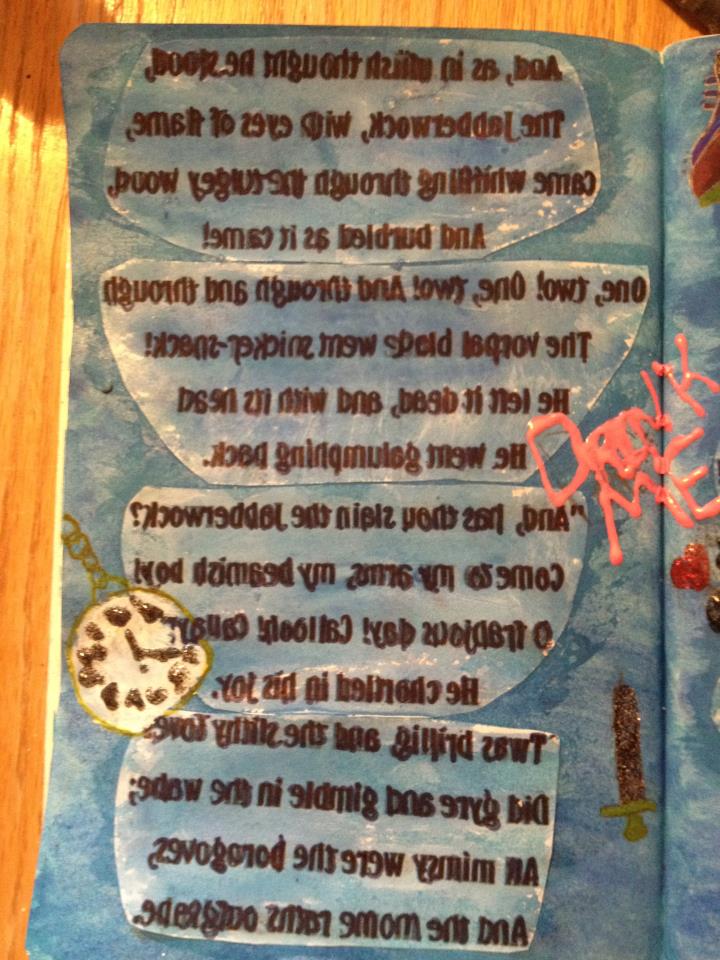 And, as in uffish thought he stood,
The Jabberwock, with eyes of flame,
came whiffling through the tulgey wood,
And burbled as it came!
One, two! One, two! And through and through
The vorpal blade went snicker-snack!
He left it dead, and with its head
He went galumphing back.
"And, has thou slain the Jabberwock?
Come to my arms, my beamish boy!
O frabjous day! Callooh! Callay!
He chortled in his joy.
Twas brillig, and the slithy toves
Did gyre and gimble in the wabe;
All mimsy were the borogoves,
And the mome raths outgrabe.
DRiNK
ME